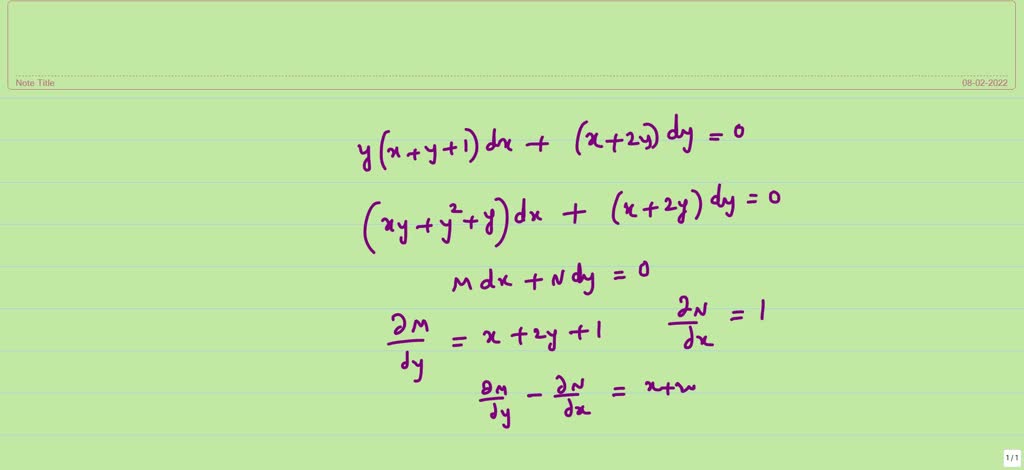 Note Title 08-02-2022
y(x+y+1)dx + (x+2y)dy = 0
(xy+y²+y)dx + (x+2y)dy = 0
M dx + N dy = 0
∂M/dy = x+2y+1 ∂N/dx = 1
∂M/dy - ∂N/dx = x+
1/1